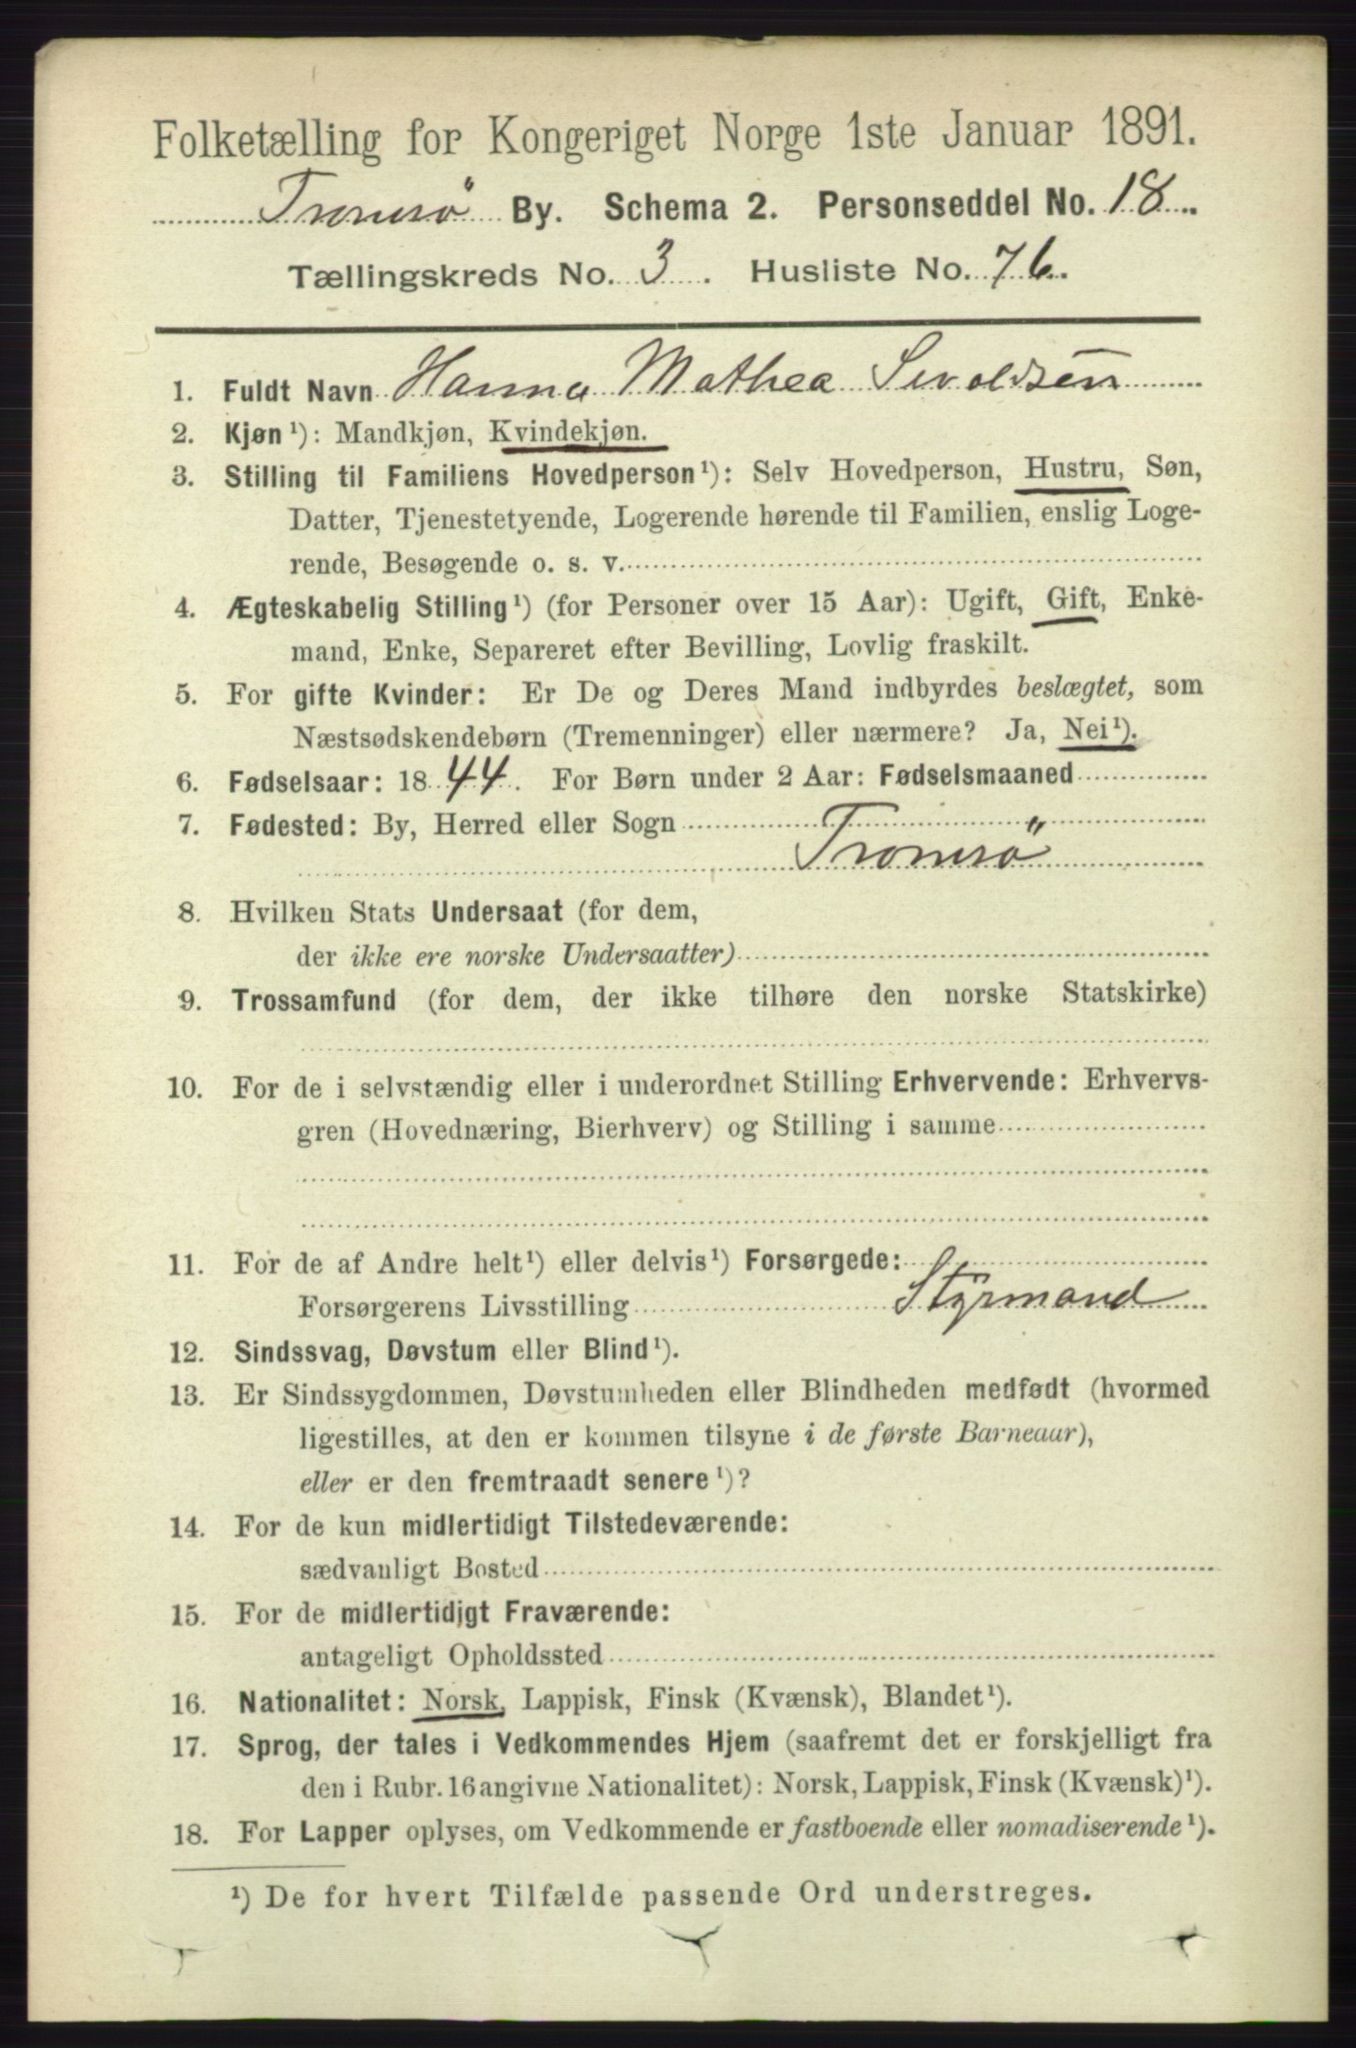 Folketælling for Kongeriget Norge 1ste Januar 1891.
Tromsö By. Schema 2. Personseddel No. 18
Tællingskreds No. 3. Husliste No. 76.
1. Fuldt Navn Hanna Mathea Sivaldsen
2. Kjøn¹): Mandkjøn, Kvindekjøn.
3. Stilling til Familiens Hovedperson¹): Selv Hovedperson, Hustru, Søn,
Datter, Tjenestetyende, Logerende hørende til Familien, enslig Loge-
rende, Besøgende o. s. v.
4. Ægteskabelig Stilling¹) (for Personer over 15 Aar): Ugift, Gift, Enke-
mand, Enke, Separeret efter Bevilling, Lovlig fraskilt.
5. For gifte Kvinder: Er De og Deres Mand indbyrdes beslægtet, som
Næstsødskendebørn (Tremenninger) eller nærmere? Ja, Nei¹).
6. Fødselsaar: 1844. For Børn under 2 Aar: Fødselsmaaned
7. Fødested: By, Herred eller Sogn
Tromsö
8. Hvilken Stats Undersaat (for dem,
der ikke ere norske Undersaatter)
9. Trossamfund (for dem, der ikke tilhøre den norske Statskirke)
10. For de i selvstændig eller i underordnet Stilling Erhvervende: Erhvervs-
gren (Hovednæring, Bierhverv) og Stilling i samme
11. For de af Andre helt¹) eller delvis¹) Forsørgede:
Forsørgerens Livsstilling Styrmand
12. Sindssvag, Døvstum eller Blind¹).
13. Er Sindssygdommen, Døvstumheden eller Blindheden medfødt (hvormed
ligestilles, at den er kommen tilsyne i de første Barneaar),
eller er den fremtraadt senere¹)?
14. For de kun midlertidigt Tilstedeværende:
sædvanligt Bosted
15. For de midlertidigt Fraværende:
antageligt Opholdssted
16. Nationalitet: Norsk, Lappisk, Finsk (Kvænsk), Blandet¹).
17. Sprog, der tales i Vedkommendes Hjem (saafremt det er forskjelligt fra
den i Rubr. 16 angivne Nationalitet): Norsk, Lappisk, Finsk (Kvænsk)¹).
18. For Lapper oplyses, om Vedkommende er fastboende eller nomadiserende¹).
¹) De for hvert Tilfælde passende Ord understreges.